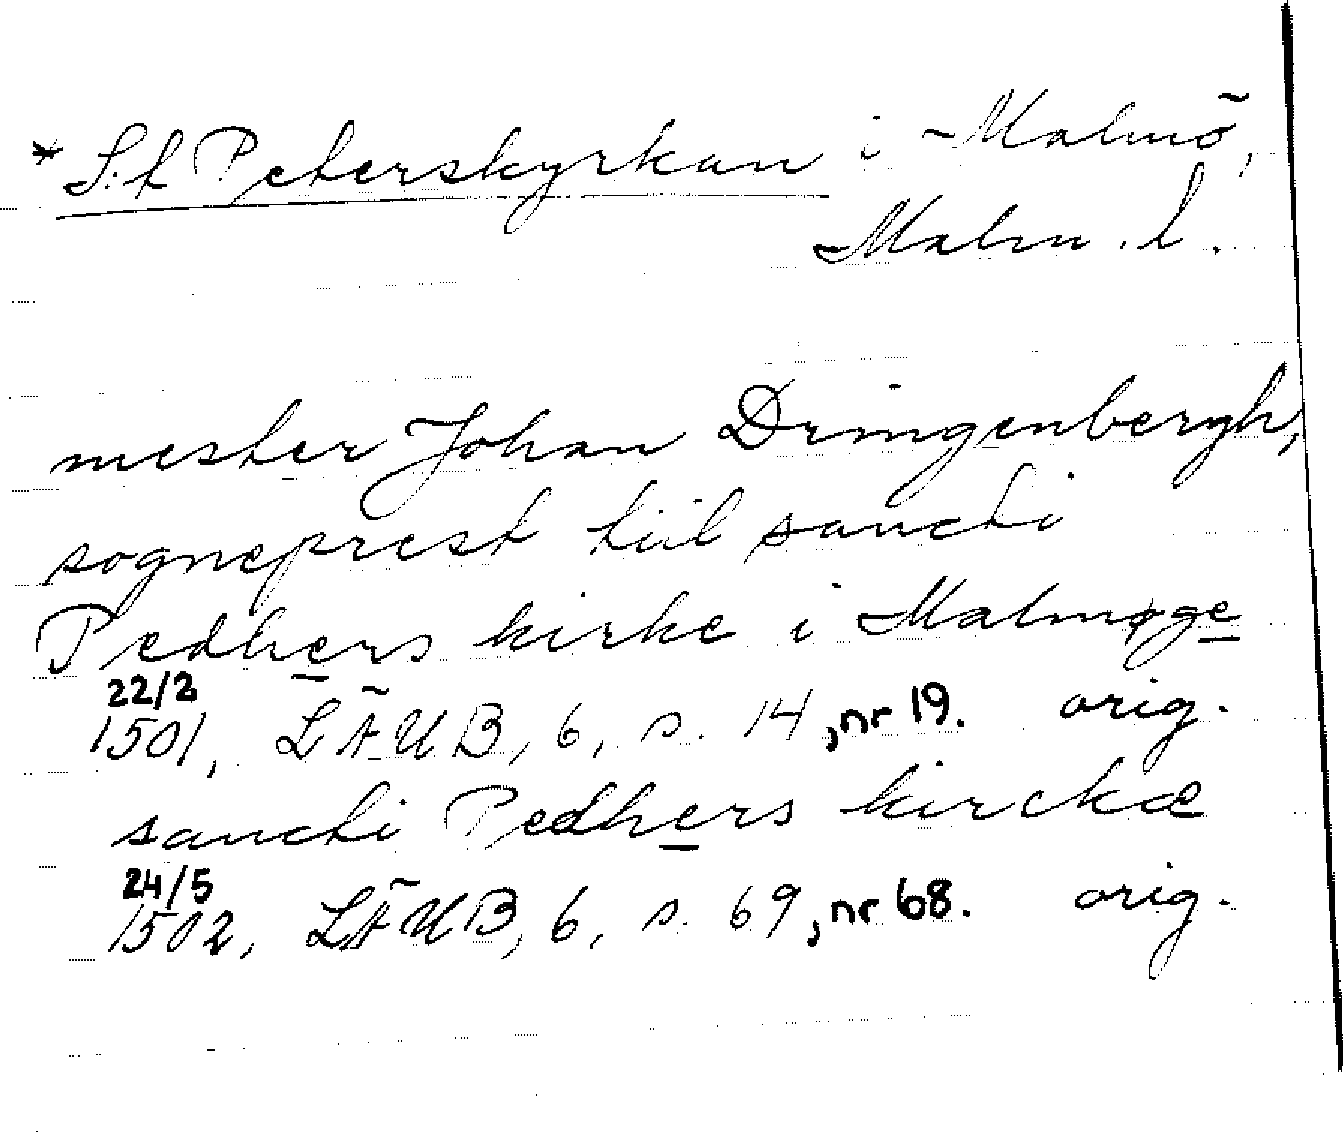 * S:t Peterskyrkan i Malmö,
Malm. l.
mester Johan Dringenbergh,
sogneprest tiil sancti
Pedhers kirke i Malmøge
22/2
1501, LÄUB, 6, s. 14, nr 19. orig.
sancti Pedhers kirckæ
24/5
1502, LÄUB, 6, s. 69, nr 68. orig.